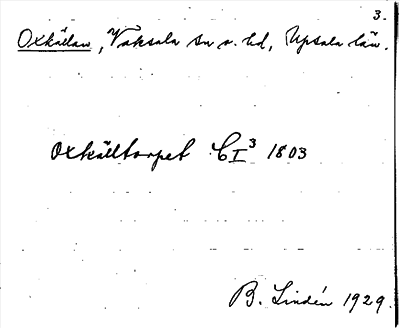 3.
Oxkällan, Vaksala sn o. hd, Upsala län.
Oxkälltorpet C I³ 1803
B. Lindén 1929.